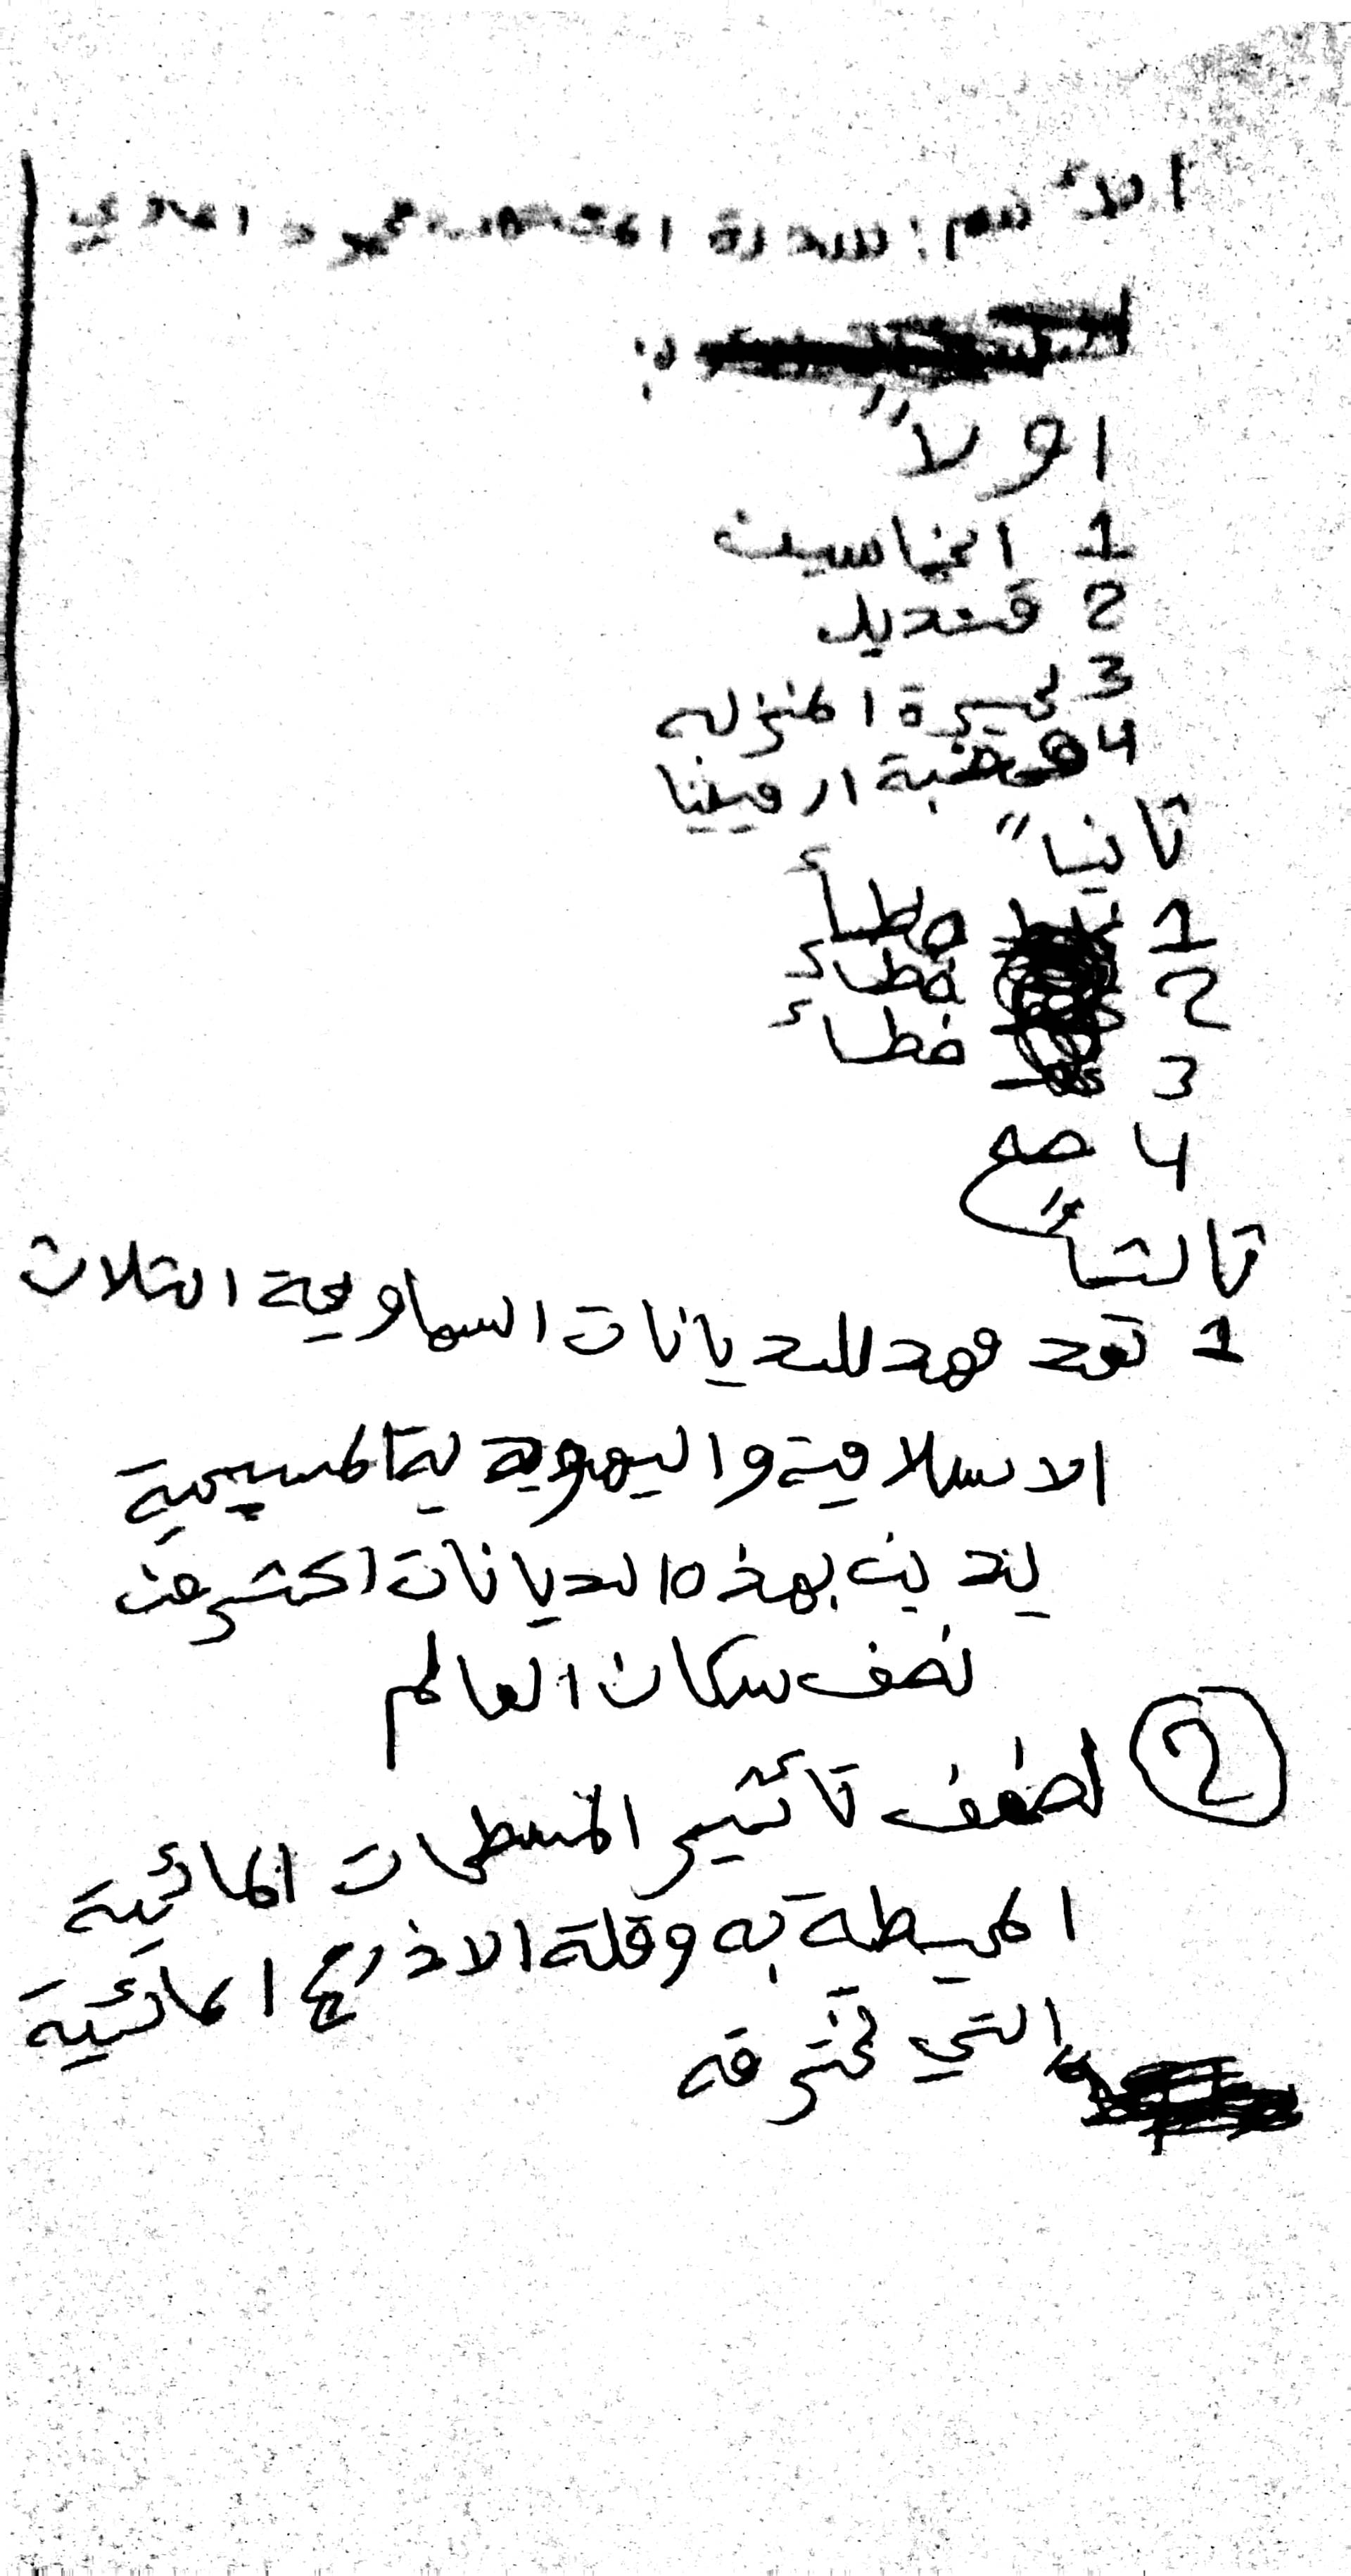 الأسم: سدرة
اولاً
1 الخماسين
2 قنديل
3 بحيرة المنزله
4 هضبة ارمينيا
ثانياً
1 خطأ
2 خطاء
3 خطاء
4 صح
ثالثاً
1 تعد مهد للديانات السماوية الثلاث
الاسلامية و المسيحية
يدين بهذه الديانات اكثر من
نصف سكان العالم
2 لضعف تأثير المسطحات المائية
المحيطة به وقلة الاذرع المائية
التي تخترقه